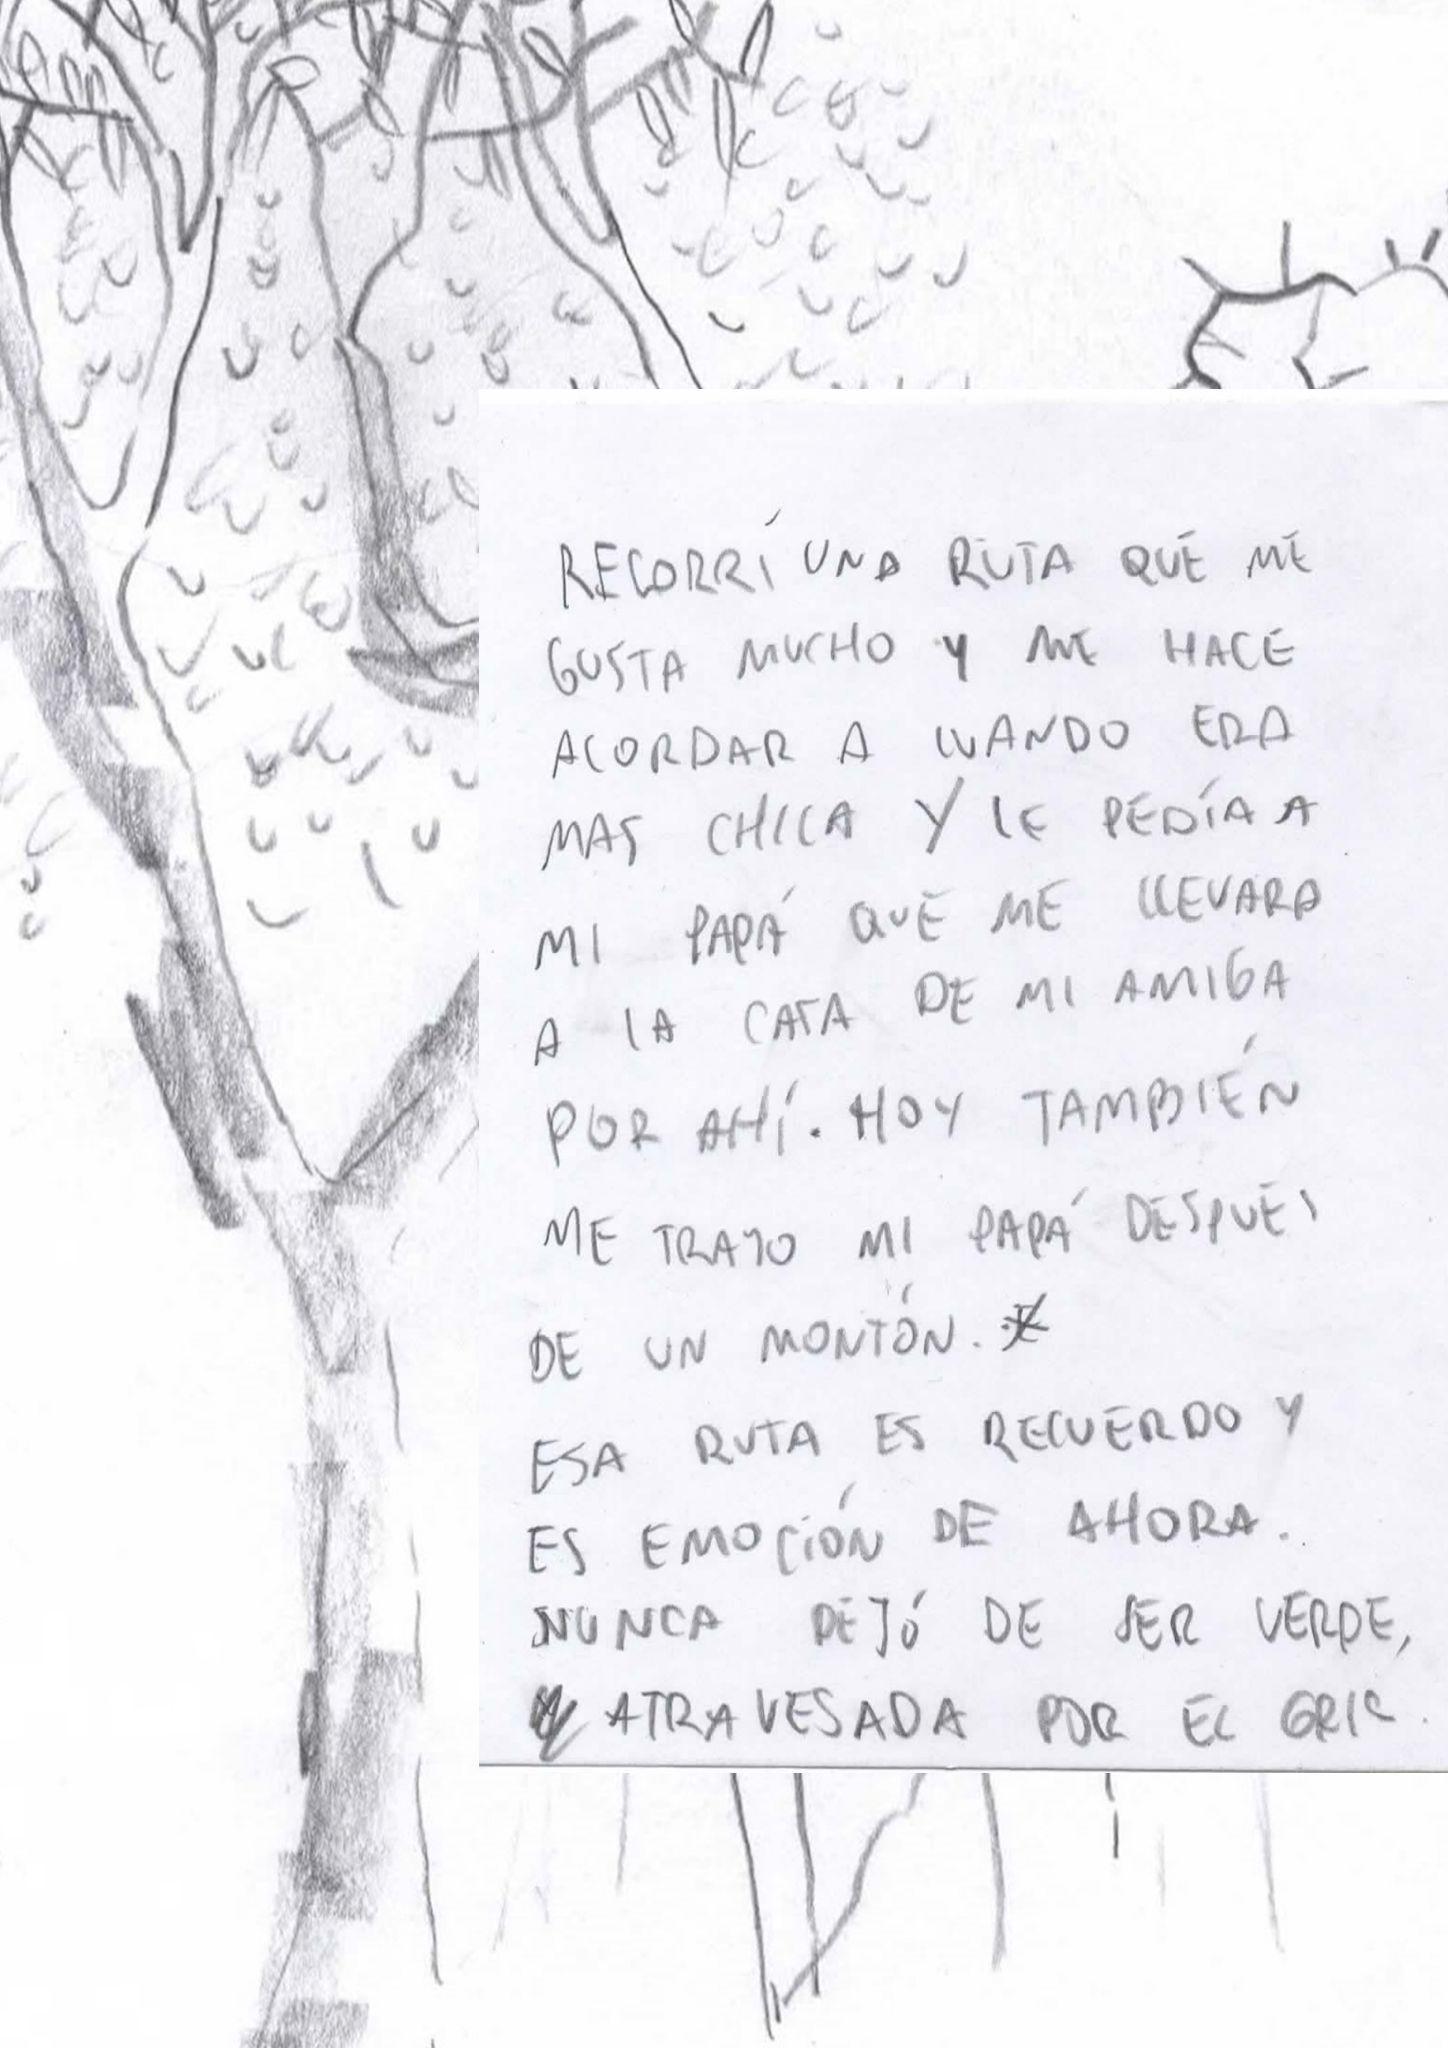 RECORRÍ UNA RUTA QUE ME
GUSTA MUCHO Y ME HACE
ACORDAR A CUANDO ERA
MAS CHICA Y LE PEDÍA A
MI PAPÁ QUE ME LLEVARA
A LA CASA DE MI AMIGA
POR AHÍ. HOY TAMBIÉN
ME TRAJO MI PAPÁ DESPUÉS
DE UN MONTÓN. *
ESA RUTA ES RECUERDO Y
ES EMOCIÓN DE AHORA.
NUNCA DEJÓ DE SER VERDE,
ATRAVESADA POR EL GRIS.